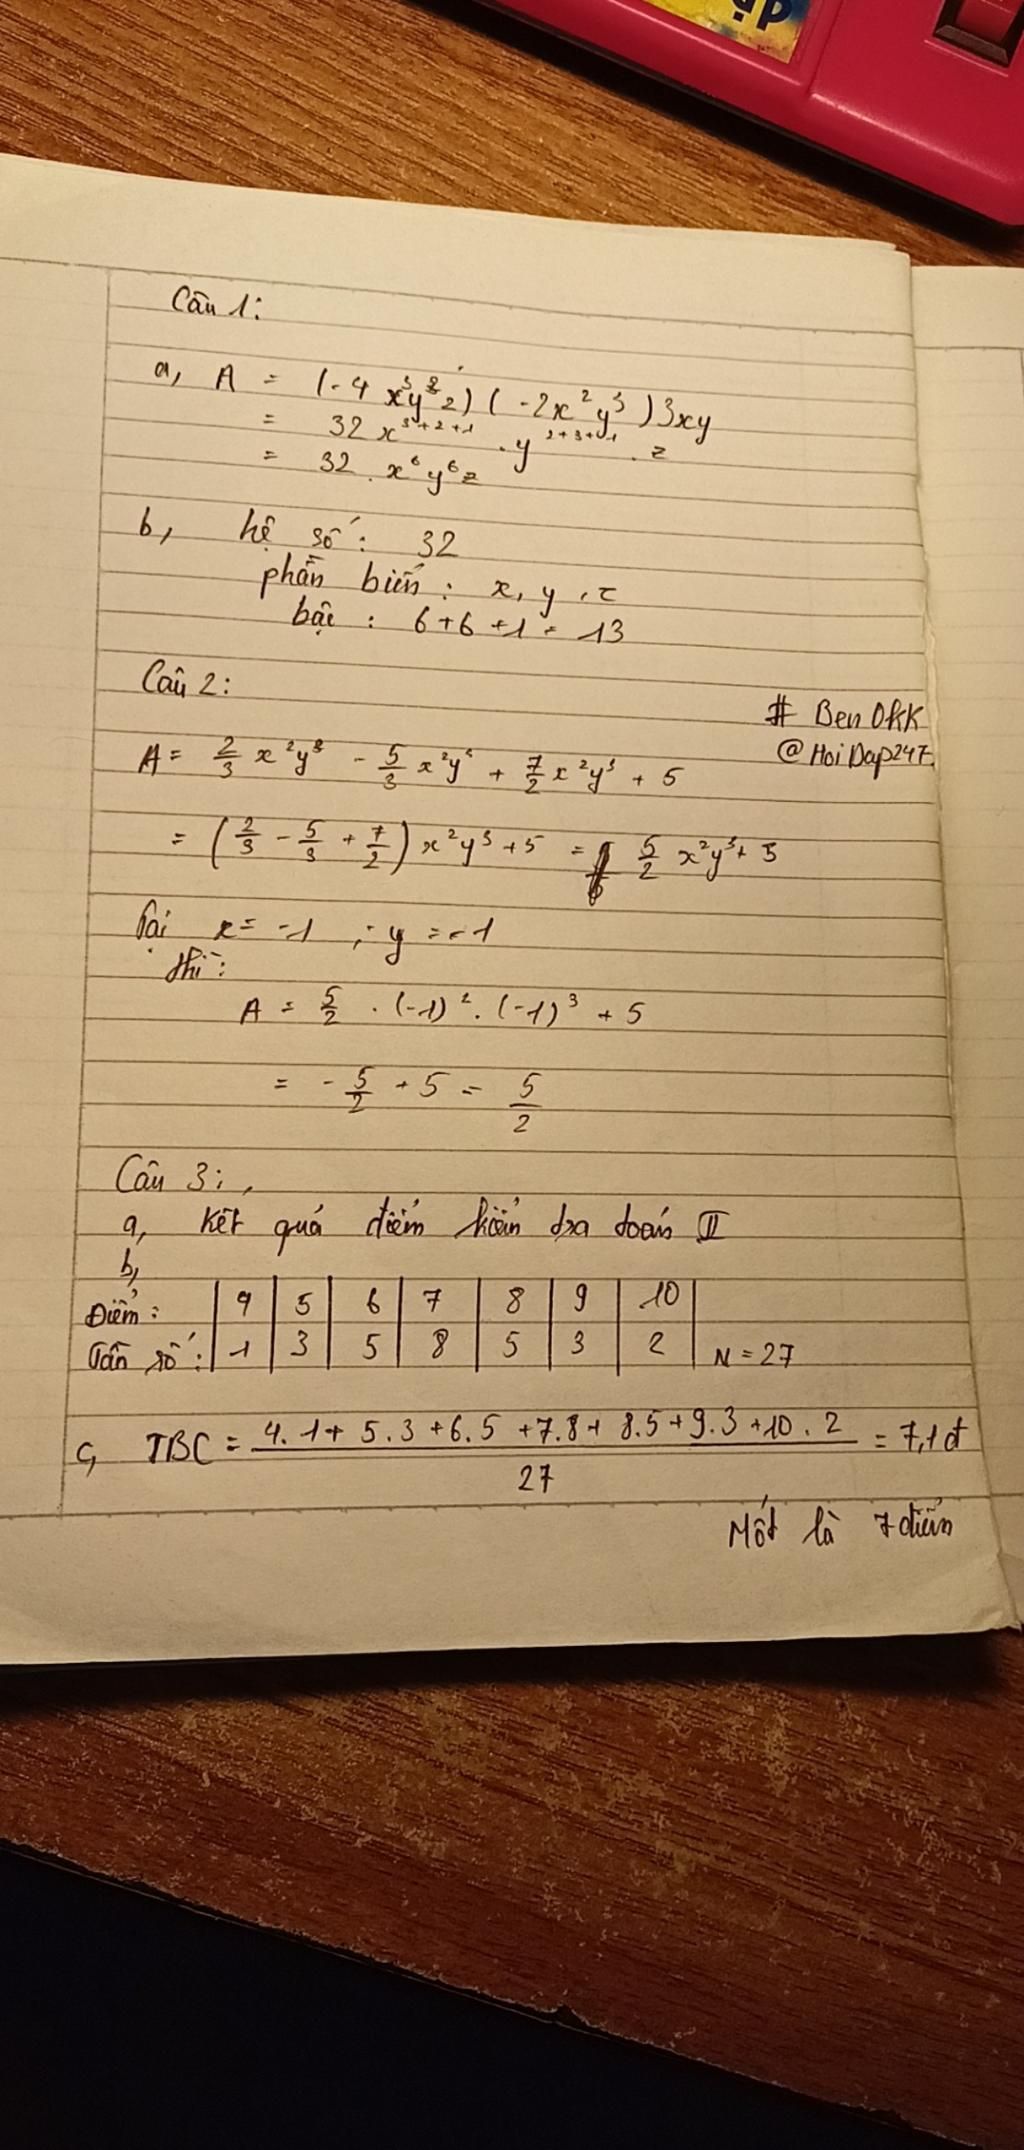 Câu 1:
a, A = (-4x³y²z)(-2x²y³)3xy
= 32 x³⁺²⁺¹ . y²⁺³⁺¹ . z
= 32 . x⁶y⁶z
b, hệ số: 32
phần biến: x, y, z
bậc: 6+6+1 = 13
Câu 2:
# Ben OkK
@HoiDap247.
A = 2/3 x²y³ - 5/3 x²y³ + 7/2 x²y³ + 5
= (2/3 - 5/3 + 7/2) x²y³ + 5 = 5/2 x²y³ + 5
Tại x = -1 ; y = -1
thì:
A = 5/2 . (-1)² . (-1)³ + 5
= -5/2 + 5 = 5/2
Câu 3:
a, Kết quả điểm kiểm tra toán II
b,
Điểm: 4 5 6 7 8 9 10
Tần số: 1 3 5 8 5 3 2 N = 27
c, TBC = 4.1 + 5.3 + 6.5 + 7.8 + 8.5 + 9.3 + 10.2 / 27 = 7,1đ
Mốt là 7 điểm